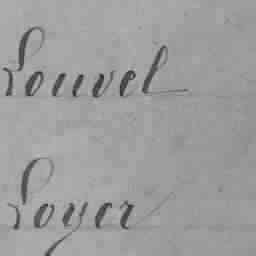 Louvel
Loyer